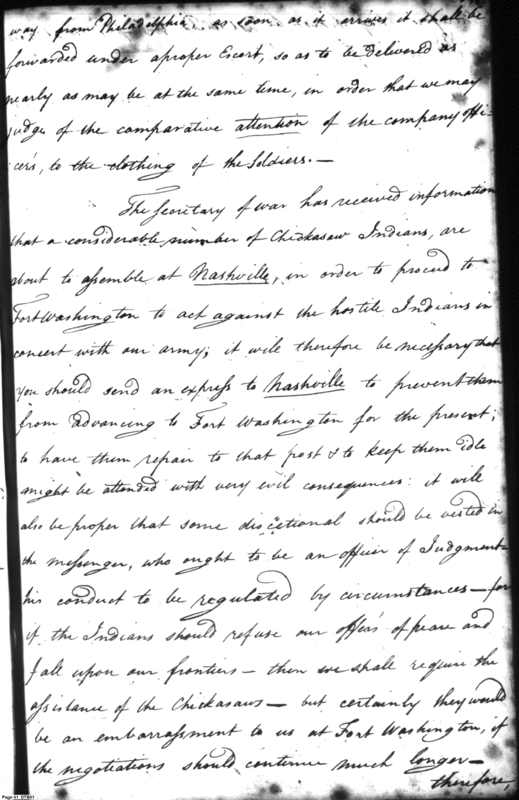 way from Philadelphia. as soon as it arrives it shall be
forwarded under a proper Escort, so as to be delivered as
nearly as may be at the same time, in order that we may
judge of the comparative attention of the company offi-
cers, to the clothing of the Soldiers.—
The Secretary of war has received information
that a considerable number of Chickasaw Indians, are
about to assemble at Nashville, in order to proceed to
Fort Washington to act against the hostile Indians in
concert with our army; it will therefore be necessary that
you should send an express to Nashville to prevent them
from advancing to Fort Washington for the present;
to have them repair to that post & to keep them idle
might be attended with very evil consequences: it will
also be proper that some discetional should be vested in
the messenger, who ought to be an officer of Judgment
his conduct to be regulated by circumstances — for
if the Indians should refuse our offers of peace and
fall upon our frontiers — then we shall require the
assistance of the Chickasaws — but certainly they would
be an embarrassment to us at Fort Washington, if
the negotiations should continue much longer —
therefore,
Page 41 DTB01